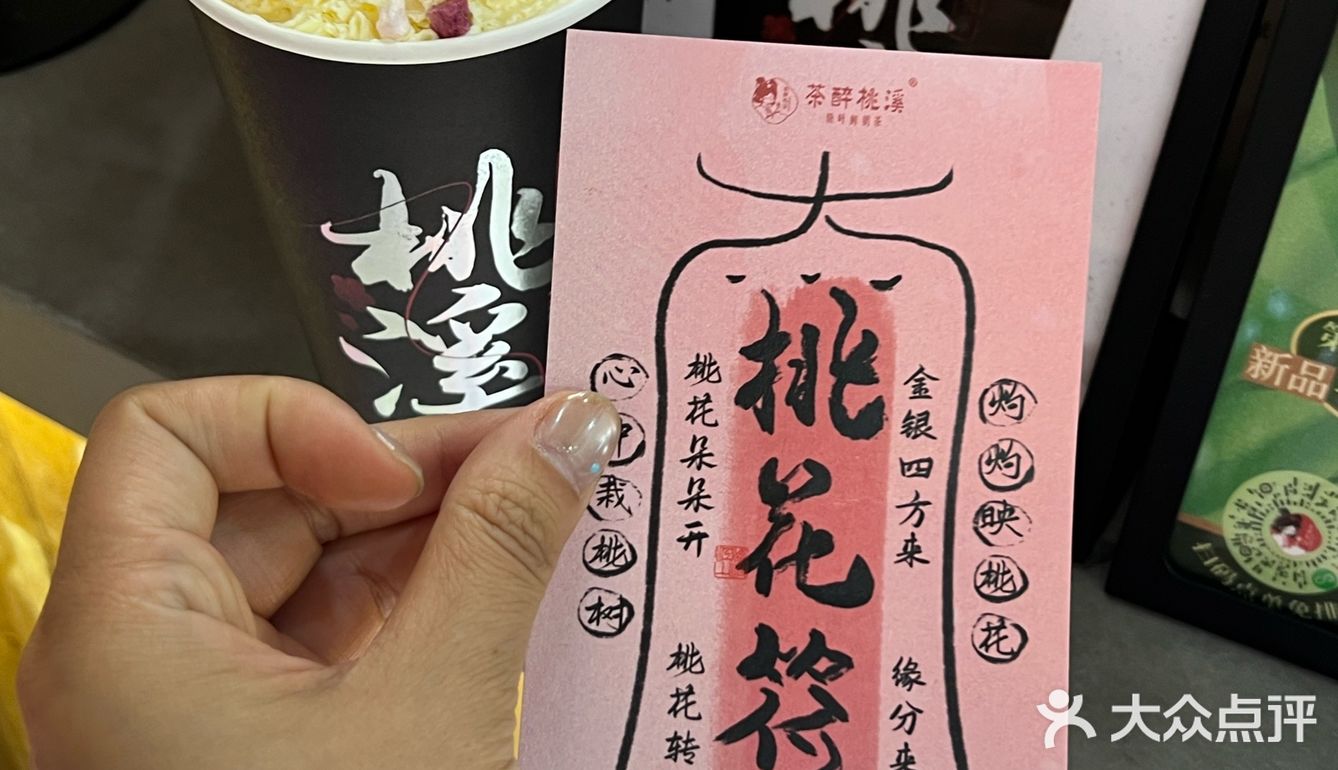 桃溪
茶醉桃溪®
桃花符
金银四方来
缘分来
桃花朵朵开
桃花转
灼灼映桃花
心中栽桃树
新品
大众点评